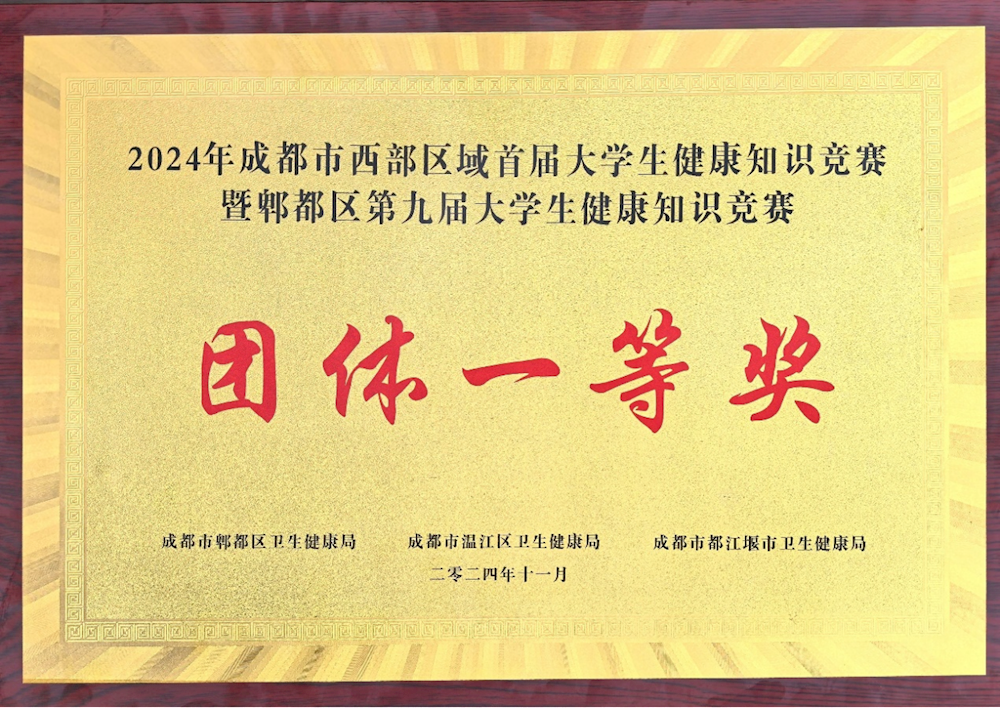 2024年成都市西部区域首届大学生健康知识竞赛
暨郫都区第九届大学生健康知识竞赛
团体一等奖
成都市郫都区卫生健康局 成都市温江区卫生健康局 成都市都江堰市卫生健康局
二零二四年十一月